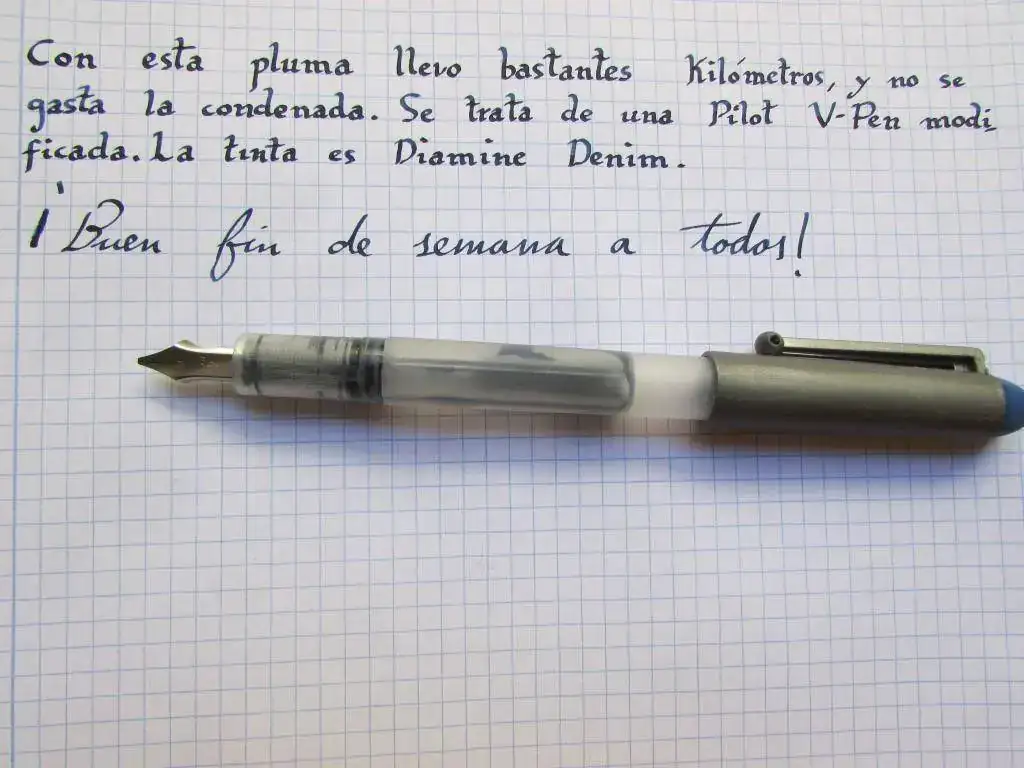 Con esta pluma llevo bastantes Kilómetros, y no se
gasta la condenada. Se trata de una Pilot V-Pen modi
ficada. La tinta es Diamine Denim.
¡Buen fin de semana a todos!